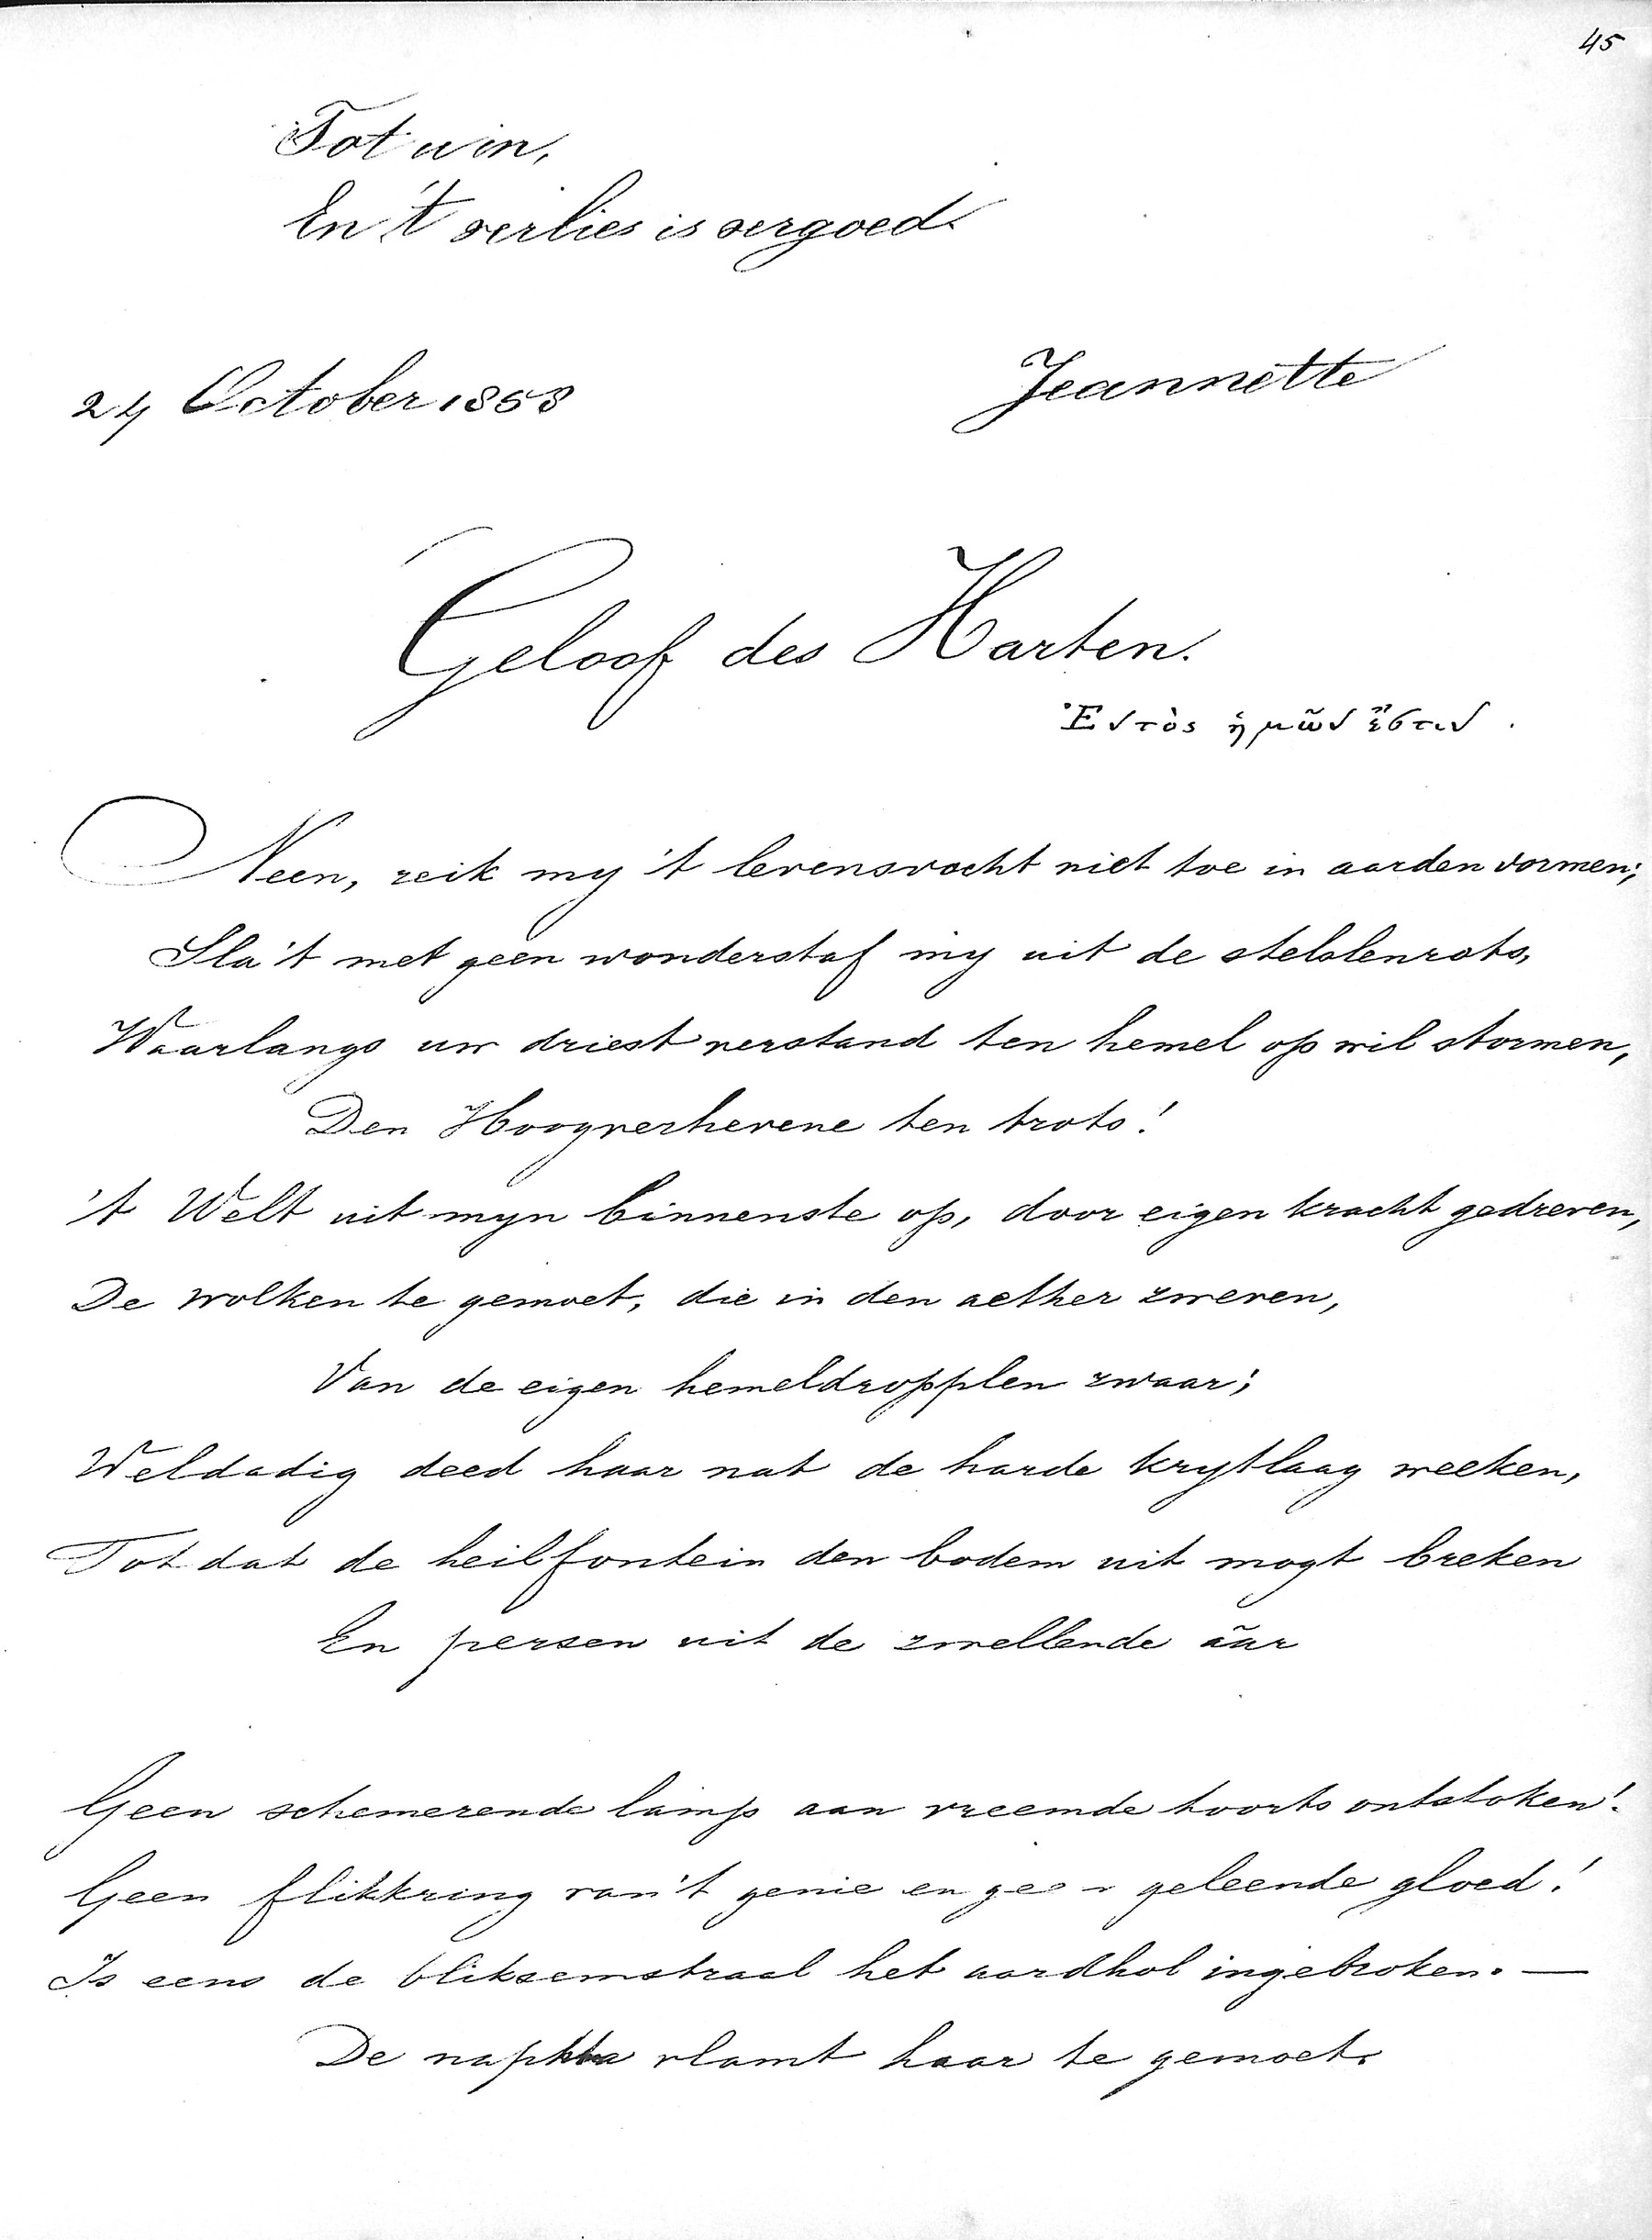 45
Tot win,
En 't verlies is vergoed.
24 October 1858
Jeannette
Geloof des Harten.
Ἐντὸς ἡμῶν ἔστιν.
Neen, reik my 't levensvocht niet toe in aarden vormen;
Sla 't met geen wonderstaf my uit de stelslenrots,
Waarlangs uw driest verstand ten hemel op wil stormen,
Den Hoogverhevene ten trots!
't Welt uit myn binnenste op, door eigen kracht gedreven,
De wolken te gemoet, die in den aether zweven,
Van de eigen hemeldropplen zwaar;
Weldadig deed haar nat de harde krytlaag weeken,
Tot dat de heilfontein den bodem uit mogt breken
En persen uit de zwellende aar
Geen schemerende lamp aan vreemde toorts ontstoken!
Geen flikkring van 't genie en geen geleende gloed!
Is eens de bliksemstraal het aardhol ingebroken. —
De naphta vlamt haar te gemoet.